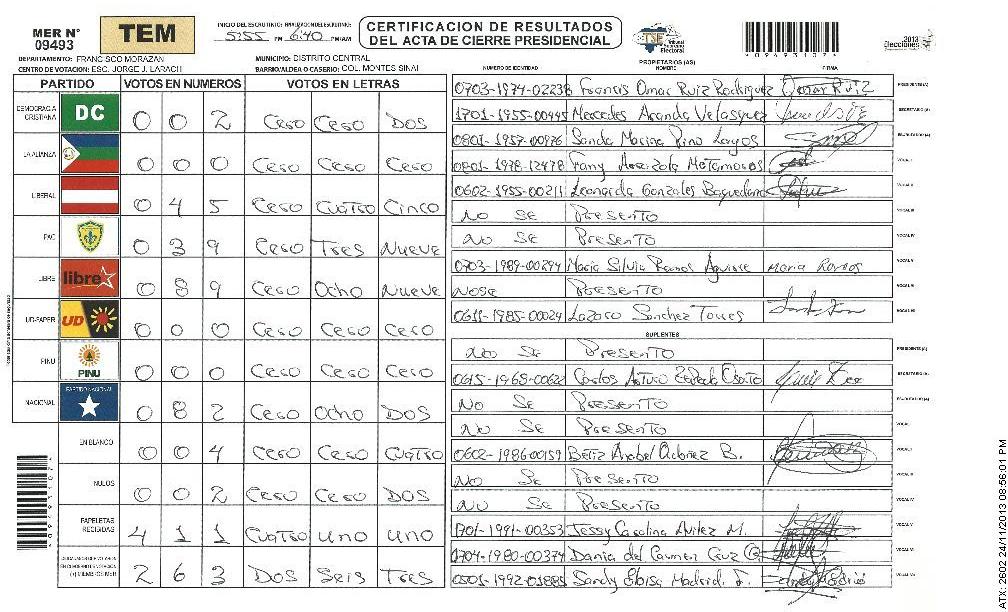 MER N° 09493
TEM
INICIO DEL ESCRUTINIO: FINALIZACION DEL ESCRUTINIO:
5:55 PM 6:40 PM/AM
CERTIFICACION DE RESULTADOS
DEL ACTA DE CIERRE PRESIDENCIAL
TSE Tribunal Supremo Electoral
09493107
2013 Elecciones
DEPARTAMENTO: FRANCISCO MORAZAN
MUNICIPIO: DISTRITO CENTRAL
CENTRO DE VOTACION: ESC. JORGE J. LARACH
BARRIO/ALDEA O CASERIO: COL. MONTES SINAI
PARTIDO VOTOS EN NUMEROS VOTOS EN LETRAS
DEMOCRACIA CRISTIANA DC 0 0 2 Cero Cero DOS
LA ALIANZA 0 0 0 Cero Cero Cero
LIBERAL 0 4 5 Cero Cuatro Cinco
PAC 0 3 9 Cero Tres Nueve
LIBRE libre 0 8 9 Cero Ocho Nueve
UD-FAPER UD 0 0 0 Cero Cero Cero
PINU PINU 0 0 0 Cero Cero Cero
NACIONAL PARTIDO NACIONAL 0 8 2 Cero Ocho DOS
EN BLANCO 0 0 4 Cero Cero Cuatro
NULOS 0 0 2 Cero Cero DOS
PAPELETAS RECIBIDAS 4 1 1 Cuatro uno uno
2 6 3 DOS Seis Tres
PROPIETARIOS (AS)
NUMERO DE IDENTIDAD NOMBRE FIRMA
0703-1974-02238 Francis Omar Ruiz Rodriguez Omar Ruiz PRESIDENTE (A)
1701-1955-00445 Mercedes Aranda Velasquez SECRETARIO (A)
0801-1957-00976 Sanda Marina Pino Lagos ESCRUTADOR (A)
0801-1978-12478 Fany Matamoros VOCAL I
0602-1955-00211 Leonarda Gonzales Baquedano VOCAL II
No Se Presento VOCAL III
No Se Presento VOCAL IV
0703-1989-00294 Maria Silvia Ramos Aguirre Maria Ramos VOCAL V
No Se Presento VOCAL VI
0611-1985-00024 Lazaro Sanchez Torres VOCAL VII
SUPLENTES
No Se Presento PRESIDENTE (A)
0615-1965-00622 Carlos Arturo Zepeda Osorto SECRETARIO (A)
No Se Presento ESCRUTADOR (A)
No Se Presento VOCAL I
0602-1986-00159 Betiz Anabel Ordoñez B. VOCAL II
No Se Presento VOCAL III
No Se Presento VOCAL IV
1701-1991-00353 Jessy Carolina Avilez M. VOCAL V
1704-1980-00374 Dania del Carmen Cruz VOCAL VI
0501-1992-01885 Sandy Eloisa Madrid. F. VOCAL VII
09493107
ATX 2602 24/11/2013 08:56:01 PM